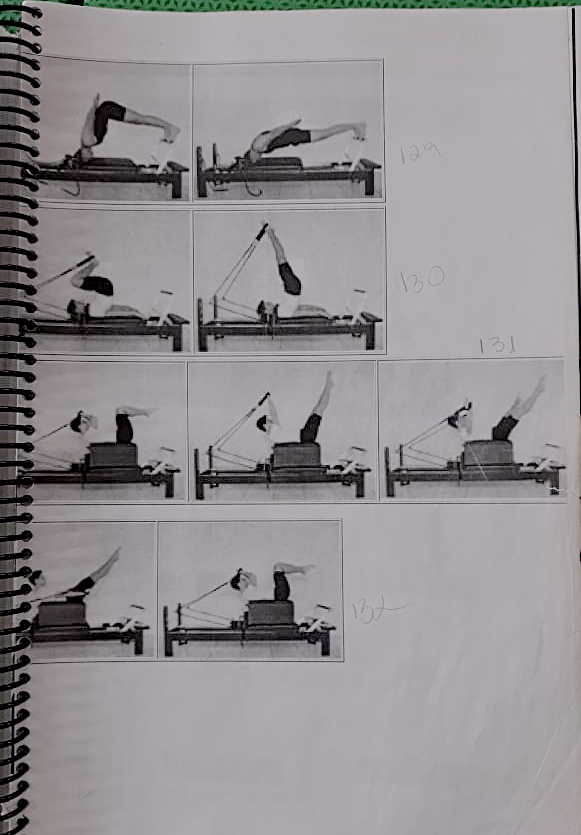 129
130
131
132